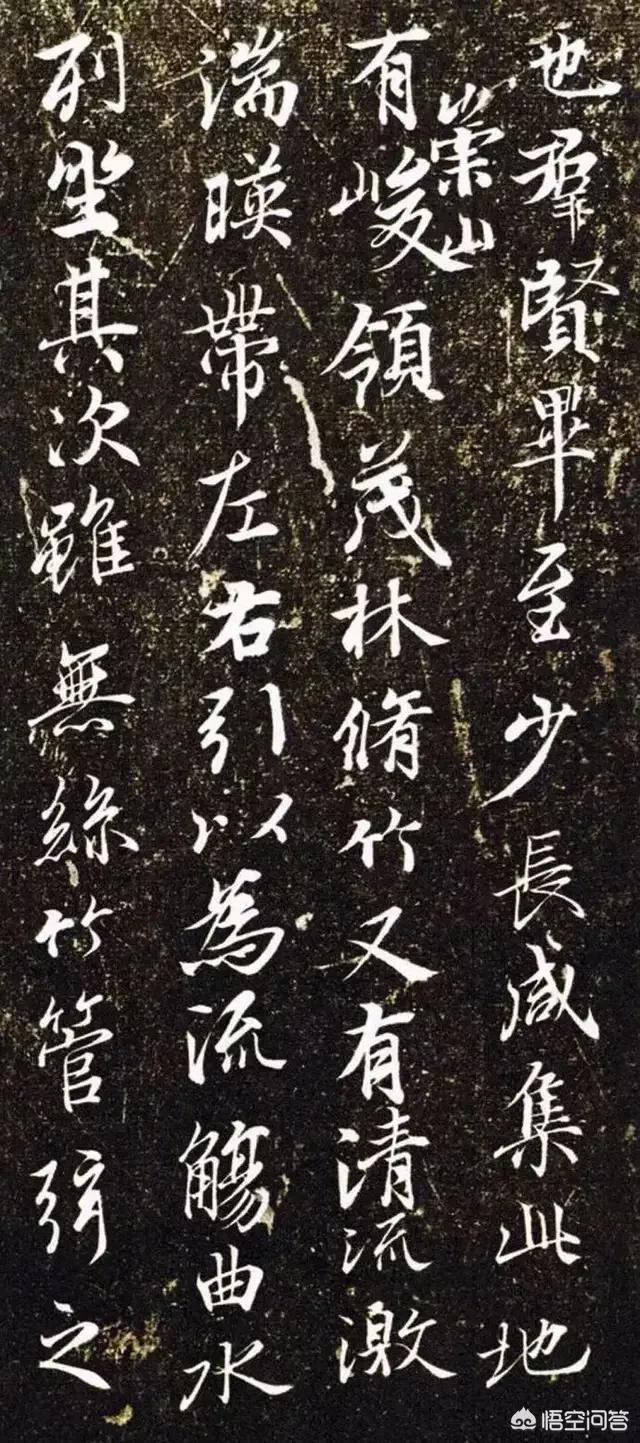 也羣賢畢至少長咸集此地
有崇山峻領茂林脩竹又有清流激
湍暎帶左右引以為流觴曲水
列坐其次雖無絲竹管弦之
悟空问答